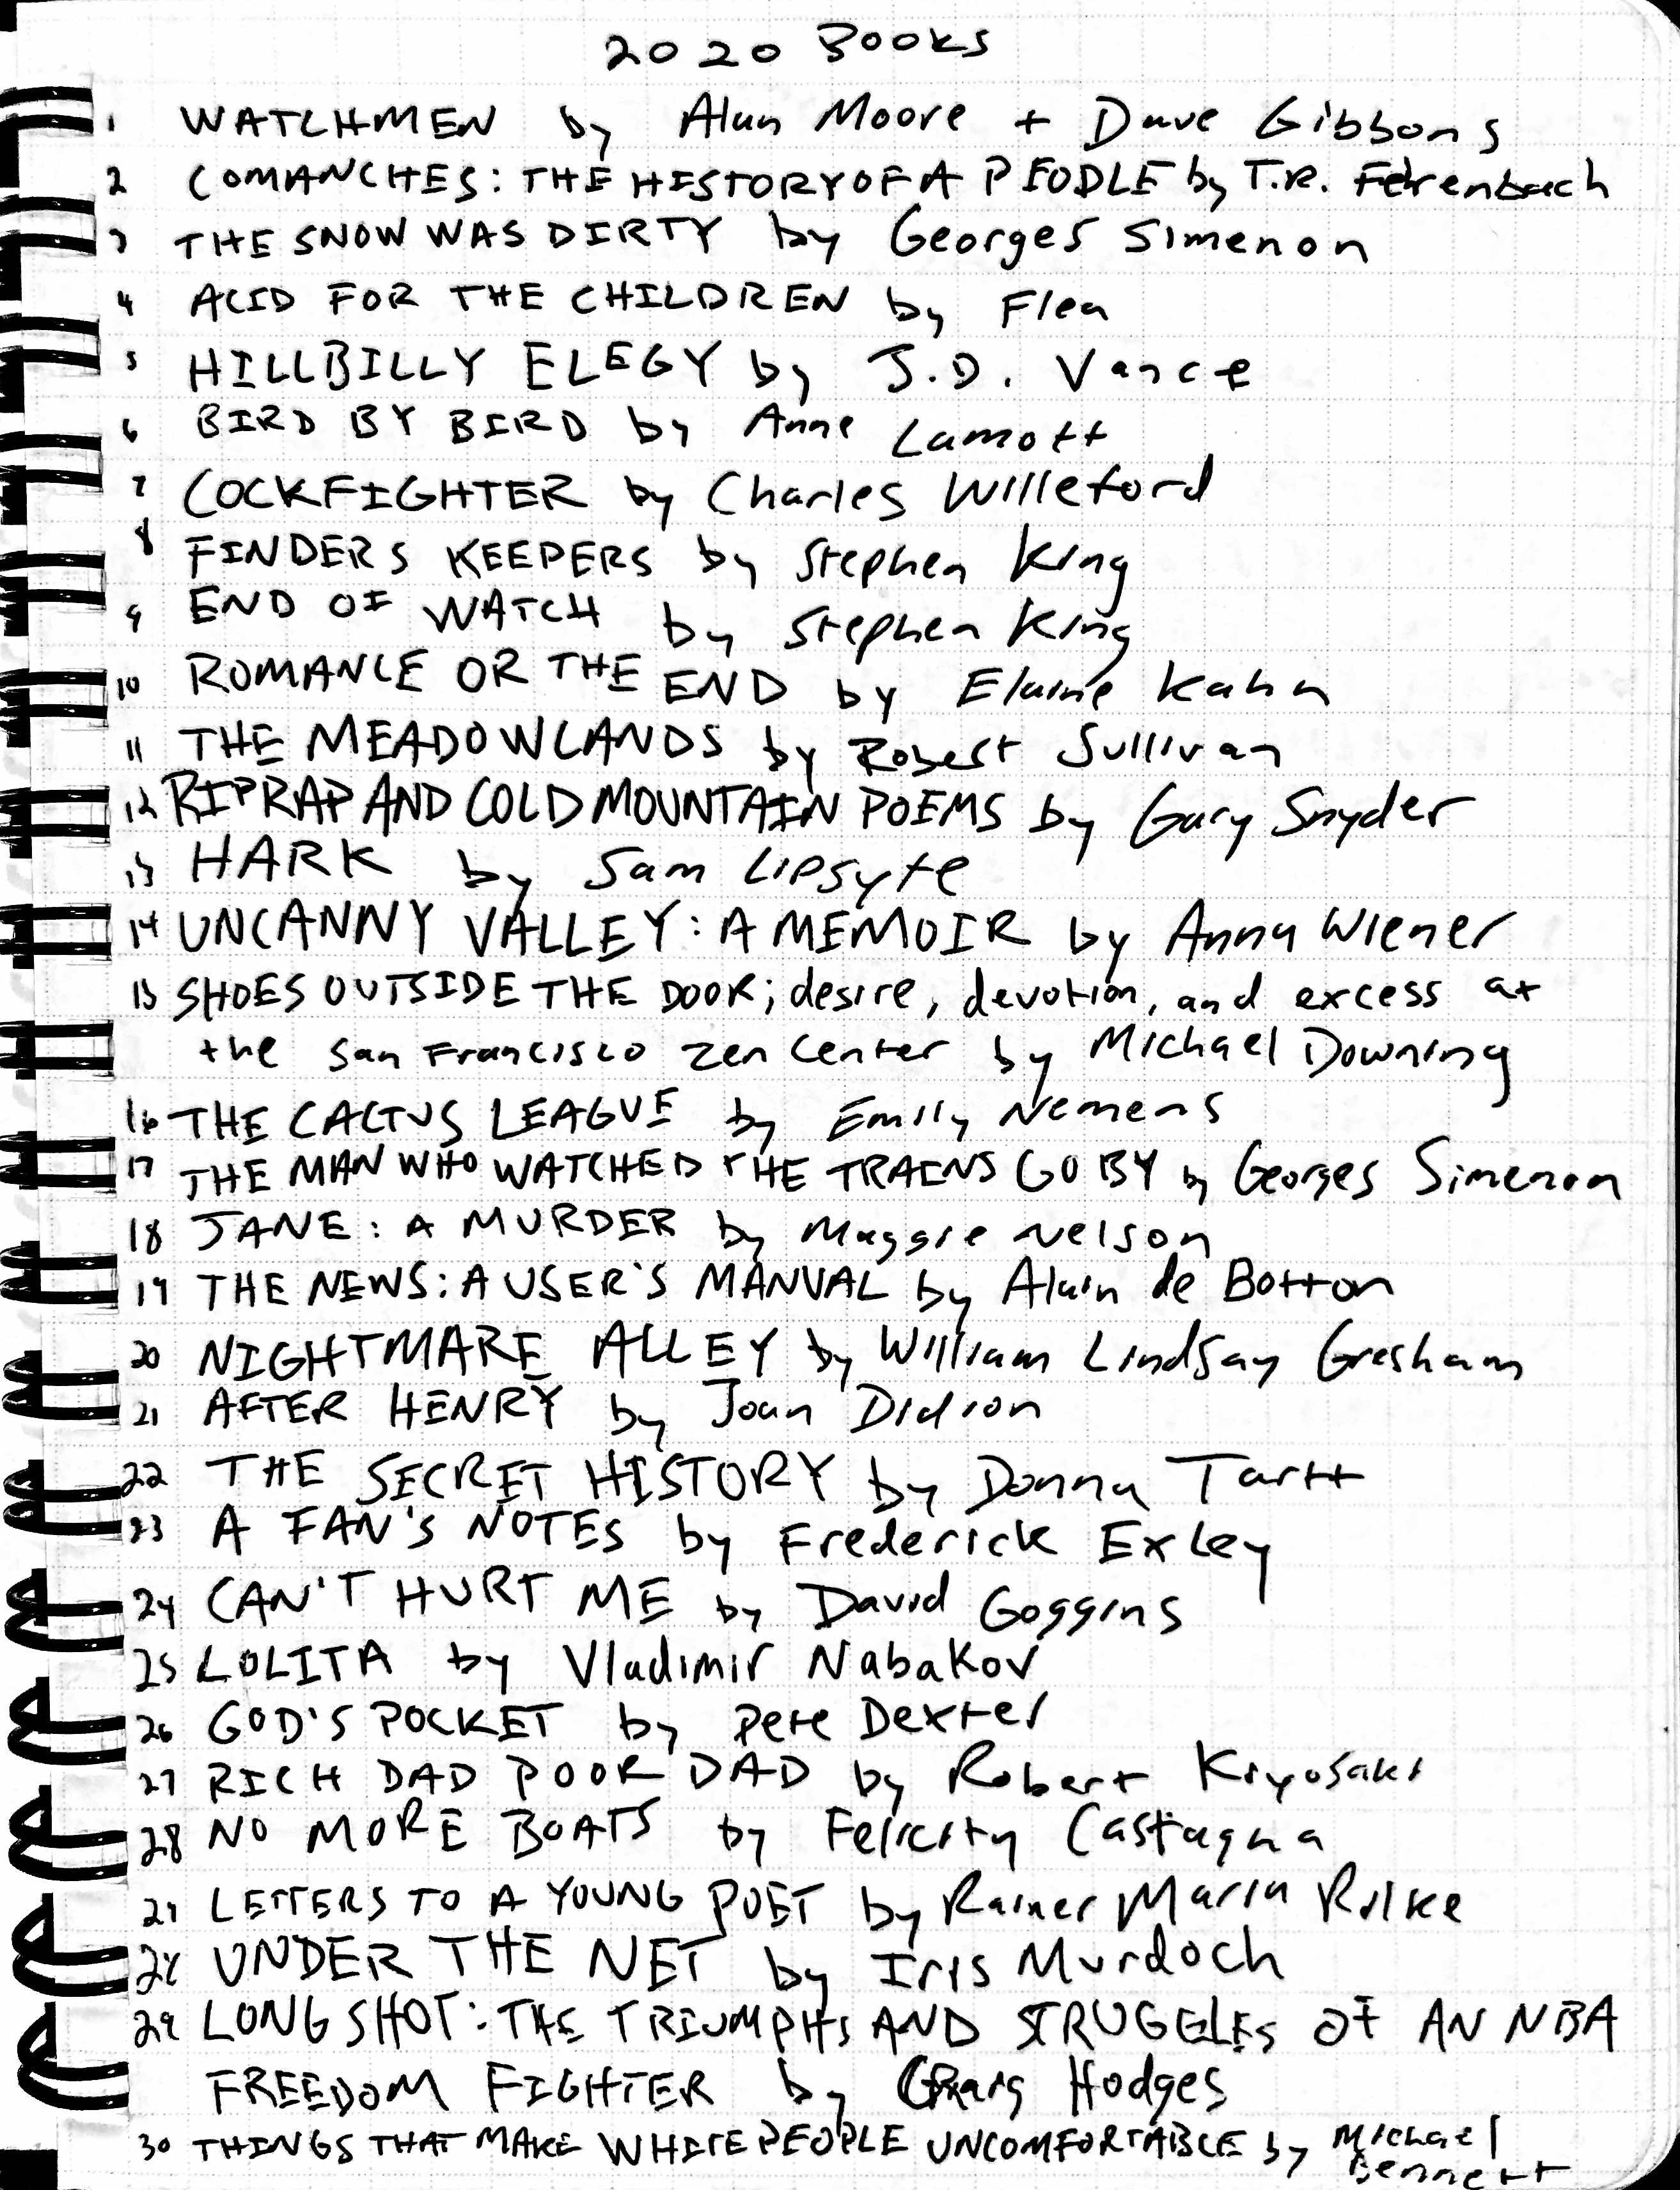 2020 Books
1 WATCHMEN by Alan Moore + Dave Gibbons
2 COMANCHES: THE HISTORY OF A PEOPLE by T.R. Fehrenbach
3 THE SNOW WAS DIRTY by Georges Simenon
4 ACID FOR THE CHILDREN by Flea
5 HILLBILLY ELEGY by J.D. Vance
6 BIRD BY BIRD by Anne Lamott
7 COCKFIGHTER by Charles Willeford
8 FINDERS KEEPERS by Stephen King
9 END OF WATCH by Stephen King
10 ROMANCE OR THE END by Elaine Kahn
11 THE MEADOWLANDS by Robert Sullivan
12 RIPRAP AND COLD MOUNTAIN POEMS by Gary Snyder
13 HARK by Sam Lipsyte
14 UNCANNY VALLEY: A MEMOIR by Anna Wiener
15 SHOES OUTSIDE THE DOOR; desire, devotion, and excess at
the San Francisco Zen Center by Michael Downing
16 THE CACTUS LEAGUE by Emily Nemens
17 THE MAN WHO WATCHED THE TRAINS GO BY by Georges Simenon
18 JANE: A MURDER by Maggie Nelson
19 THE NEWS: A USER'S MANUAL by Alain de Botton
20 NIGHTMARE ALLEY by William Lindsay Gresham
21 AFTER HENRY by Joan Didion
22 THE SECRET HISTORY by Donna Tartt
23 A FAN'S NOTES by Frederick Exley
24 CAN'T HURT ME by David Goggins
25 LOLITA by Vladimir Nabakov
26 GOD'S POCKET by Pete Dexter
27 RICH DAD POOR DAD by Robert Kiyosaki
28 NO MORE BOATS by Felicity Castagna
29 LETTERS TO A YOUNG POET by Rainer Maria Rilke
28 UNDER THE NET by Iris Murdoch
29 LONG SHOT: THE TRIUMPHS AND STRUGGLES OF AN NBA
FREEDOM FIGHTER by Craig Hodges
30 THINGS THAT MAKE WHITE PEOPLE UNCOMFORTABLE by Michael
Bennett